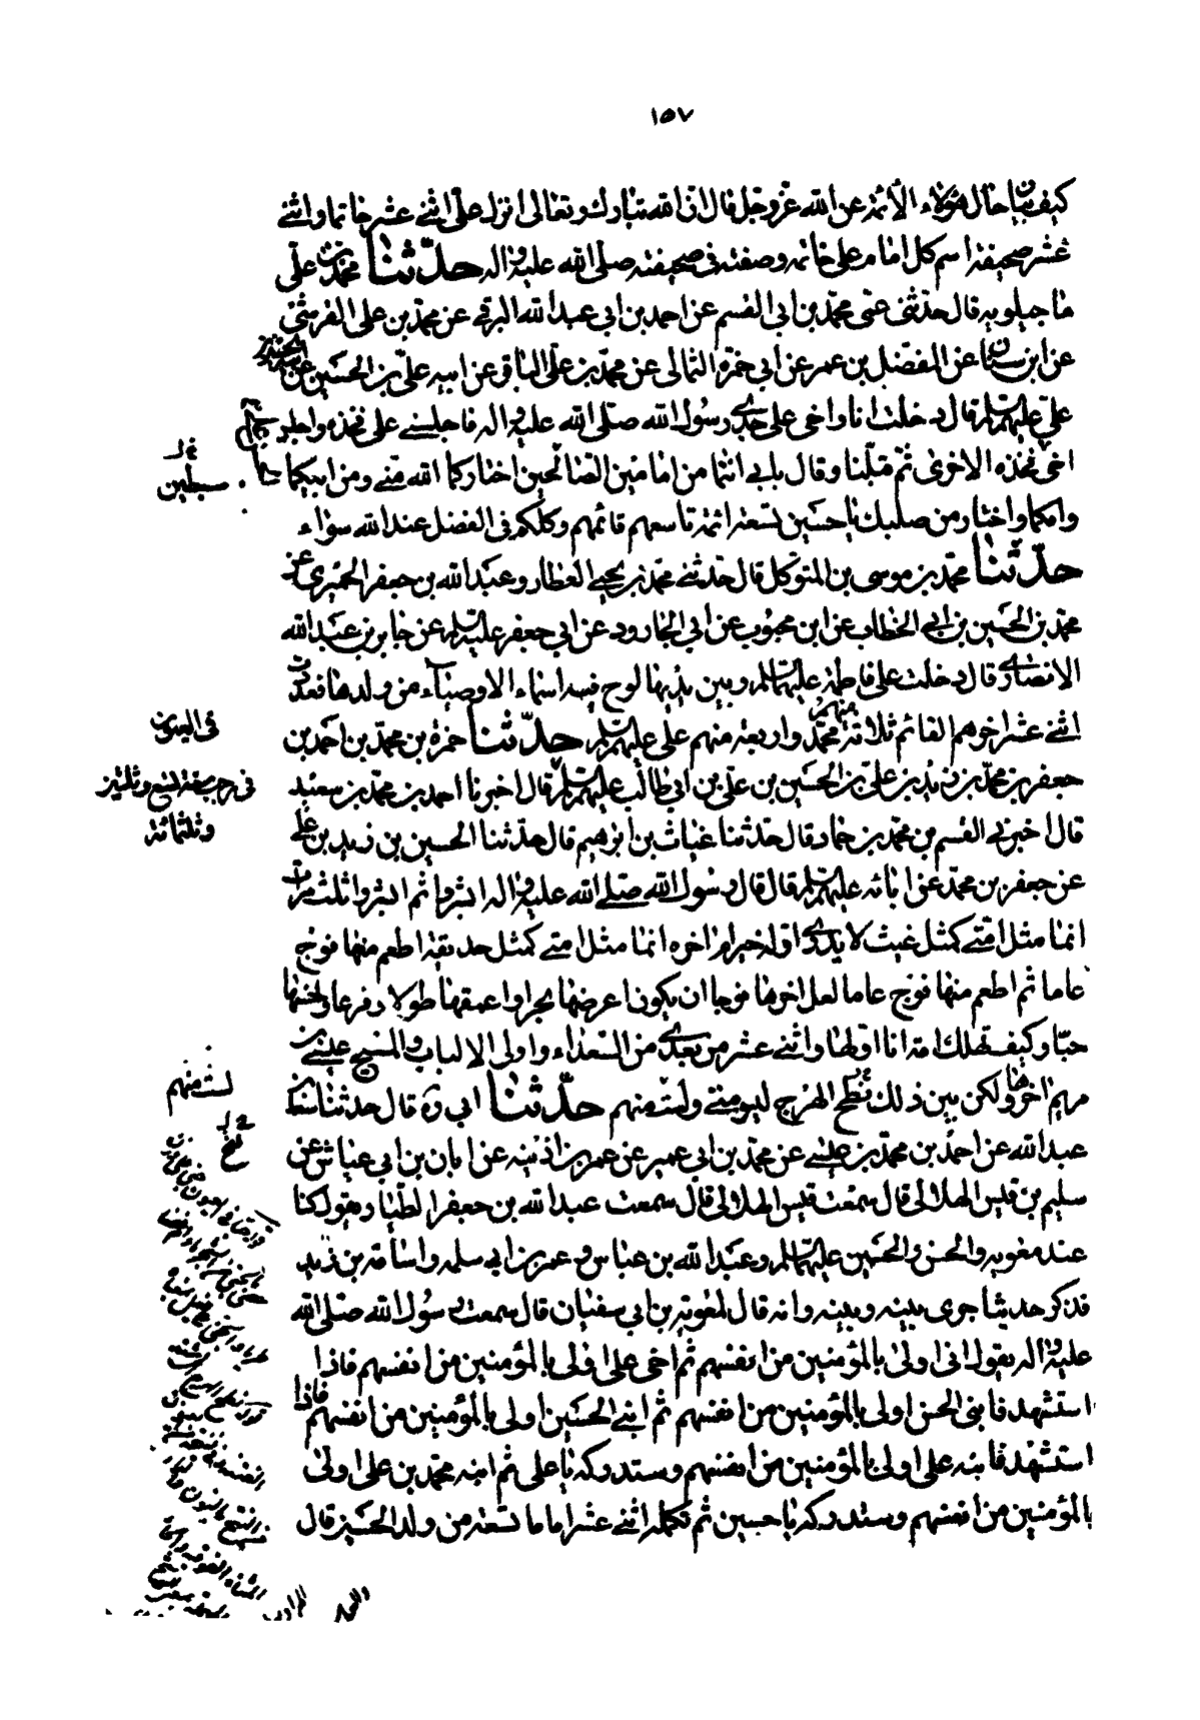 ١٥٧
كيف بيان حال هؤلاء الأئمة عن الله عز وجل قال ان الله تبارك وتعالى انزل على اثنى عشر خاتما واثنى
عشر صحيفة اسم كل امام على خاتمه وصفته فى صحيفته صلى الله عليه واله حدّثنا محمد بن على
ماجيلويه قال حدثنى عمى محمد بن ابى القسم عن احمد بن ابى عبد الله البرقى عن محمد بن على القرشى
عن ابن سنان عن المفضل بن عمر عن ابى حمزة الثمالى عن محمد بن على الباقر عن ابيه على بن الحسين عن
على عليهم السلم قال دخلت انا واخى على جدى رسول الله صلى الله عليه واله فاجلسنى على فخذه واجلس
اخى فخذه الاخرى ثم قبلنا وقال بابى انتما من امامين الصالحين اختاركما الله منى ومن ابيكما
سبطين
وامكما واختار من صلبك يا حسين تسعة ائمة تاسعهم قائمهم وكلكم فى الفضل عند الله سواء
حدّثنا محمد بن موسى بن المتوكل قال حدثنى محمد بن يحيى العطار وعبد الله بن جعفر الحميرى عن
محمد بن الحسين بن ابى الخطاب عن ابن محبوب عن ابى الجارود عن ابى جعفر عليه السلم عن جابر بن عبد الله
الانصارى قال دخلت على فاطمة عليها السلم وبين يديها لوح فيه اسماء الاوصياء من ولدها فعددت
اثنى عشر اخرهم القائم ثلاثة منهم محمد واربعة منهم على عليهم السلم حدّثنا حمزة بن محمد بن احمد بن
جعفر بن محمد بن زيد بن على بن الحسين بن على بن ابى طالب عليهم السلم قال اخبرنا احمد بن محمد بن سعيد
فى رجب سنة تسع وثلثين
وثلثمائة
قال اخبرنى القسم بن محمد بن حماد قال حدثنا غياث بن ابرهيم قال حدثنا الحسين بن زيد بن على
عن جعفر بن محمد عن ابائه عليهم السلم قال قال رسول الله صلى الله عليه واله ابشروا ثم ابشروا ثلث مرات
انما مثل امتى كمثل غيث لا يدرى اوله خير ام اخره انما مثل امتى كمثل حديقة اطعم منها فوج
عاما ثم اطعم منها فوج عاما لعل اخرها فوجا ان يكون اعرضها بحرا واعمقها طولا وفرعا واحسنها
حبا وكيف تهلك امة انا اولها واثنى عشر من بعدى من السعداء واولى الالباب والمسيح عيسى بن
مريم اخرها ولكن بين ذلك نتج الهرج ليسو منى ولست منهم حدّثنا ابى ره قال حدثنا سعد بن
لست منهم
عبد الله عن احمد بن محمد بن عيسى عن محمد بن ابى عمير عن عمر بن اذينه عن ابان بن ابى عياش عن
سليم بن قيس الهلالى قال سمعت قيس الهلالى قال سمعت عبد الله بن جعفر الطيار يقول كنا
عند معوية والحسن والحسين عليهما السلم وعبد الله بن عباس وعمر بن ابى سلمه واسامة بن زيد
فذكر حديثا جرى بينه وبينه وانه قال لمعوية بن ابى سفيان قال سمعت رسول الله صلى الله
عليه واله يقول انى اولى بالمؤمنين من انفسهم ثم اخى على اولى بالمؤمنين من انفسهم فاذا
استشهد فابنى الحسن اولى بالمؤمنين من انفسهم ثم ابنى الحسين اولى بالمؤمنين من انفسهم فاذا
استشهد فابنه على اولى بالمؤمنين من انفسهم وستدركه يا على ثم ابنه محمد بن على اولى
بالمؤمنين من انفسهم وستدركه يا حسين ثم تكمله اثنى عشر اماما تسعة من ولد الحسين قال